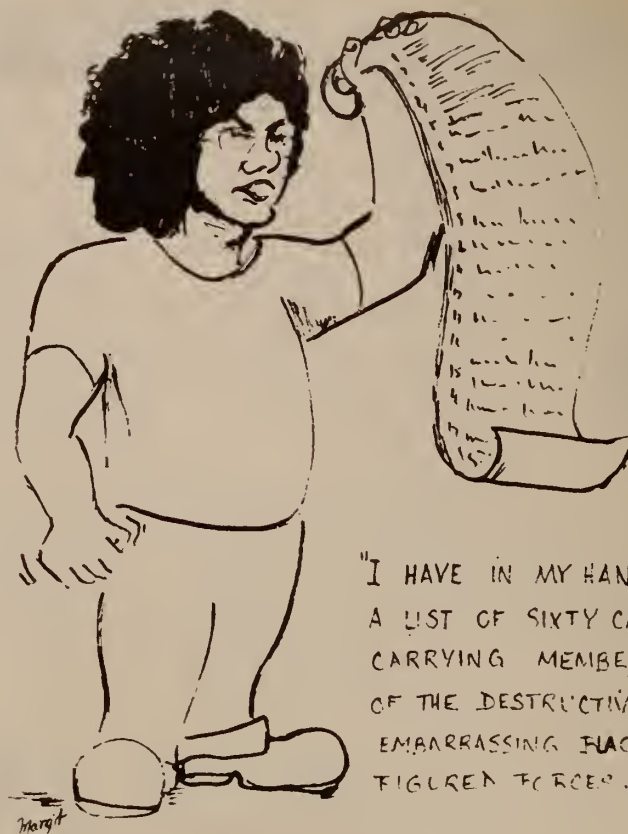 "I HAVE IN MY HAN
A LIST OF SIXTY CA
CARRYING MEMBE
OF THE DESTRUCTIV
EMBARRASSING BLAC
FIGURED FORCES.
Margit